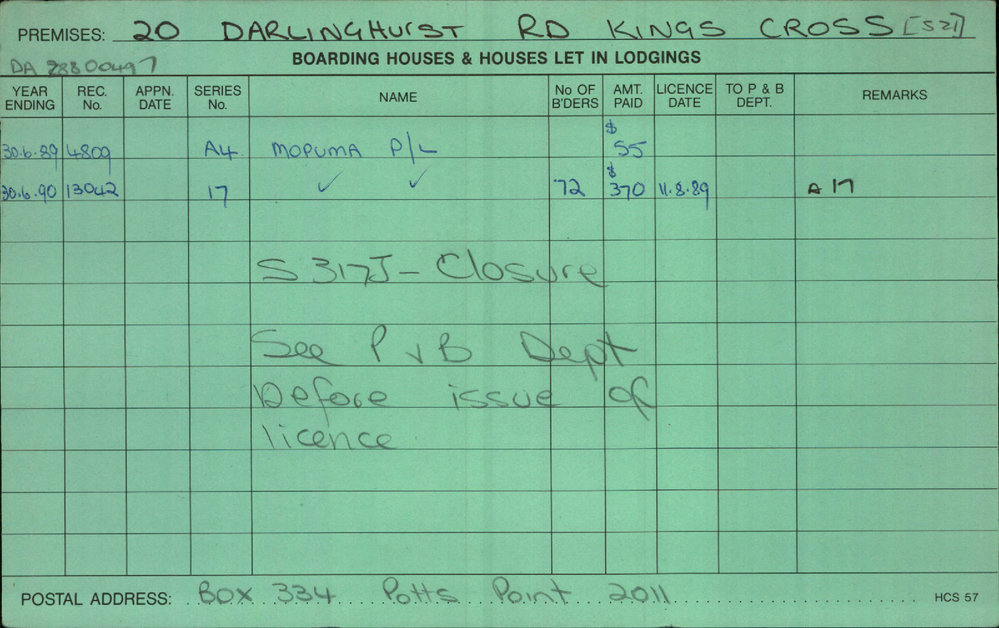 PREMISES: 20 DARLINGHURST RD KINGS CROSS [S21]
DA 28800497
BOARDING HOUSES & HOUSES LET IN LODGINGS
YEAR ENDING REC. No. APPN. DATE SERIES No. NAME No OF B'DERS AMT. PAID LICENCE DATE TO P & B DEPT. REMARKS
30.6.89 4809 A4 MOPUMA P/L $55
30.6.90 13042 17 ✓ ✓ 72 $370 11.8.89 A 17
S 317J - Closure
See P & B Dept
Before issue of
licence
POSTAL ADDRESS: Box 334 Potts Point 2011 HCS 57